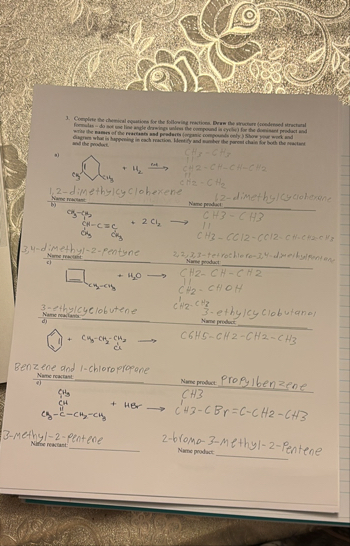 3. Complete the chemical equations for the following reactions. Draw the structure (condensed structural
formulas – do not use line angle drawings unless the compound is cyclic) for the dominant product and
write the names of the reactants and products (organic compounds only.) Show your work and
diagram what is happening in each reaction. Identify and number the parent chain for both the reactant
and the product.
a)
CH3 CH3 + H2 Cat.
1,2-dimethylcyclohexene
Name reactant:
1,2-dimethylcyclohexane
Name product:
b)
CH3-CH2
CH-C≡C + 2 Cl2
CH3 CH3
CH3 - CH3
CH3-CCl2-CCl2-CH-CH2-CH3
3,4-dimethyl-2-pentyne
Name reactant:
Name product:
c)
CH2-CH3 + H2O
CH2-CH-CH2
CH2-CHOH
CH2-CH3
3-ethylcyclobutene
Name reactants:
3-ethylcyclobutanol
Name product:
d)
+ CH3-CH2-CH2
Cl
C6H5-CH2-CH2-CH3
Benzene and 1-chloropropane
Name reactant:
Name product: Propylbenzene
e)
CH3
CH
CH3-C-CH2-CH3 + HBr
CH3
CH3-CBr=C-CH2-CH3
3-methyl-2-pentene
Name reactant:
2-bromo-3-methyl-2-Pentene
Name product: